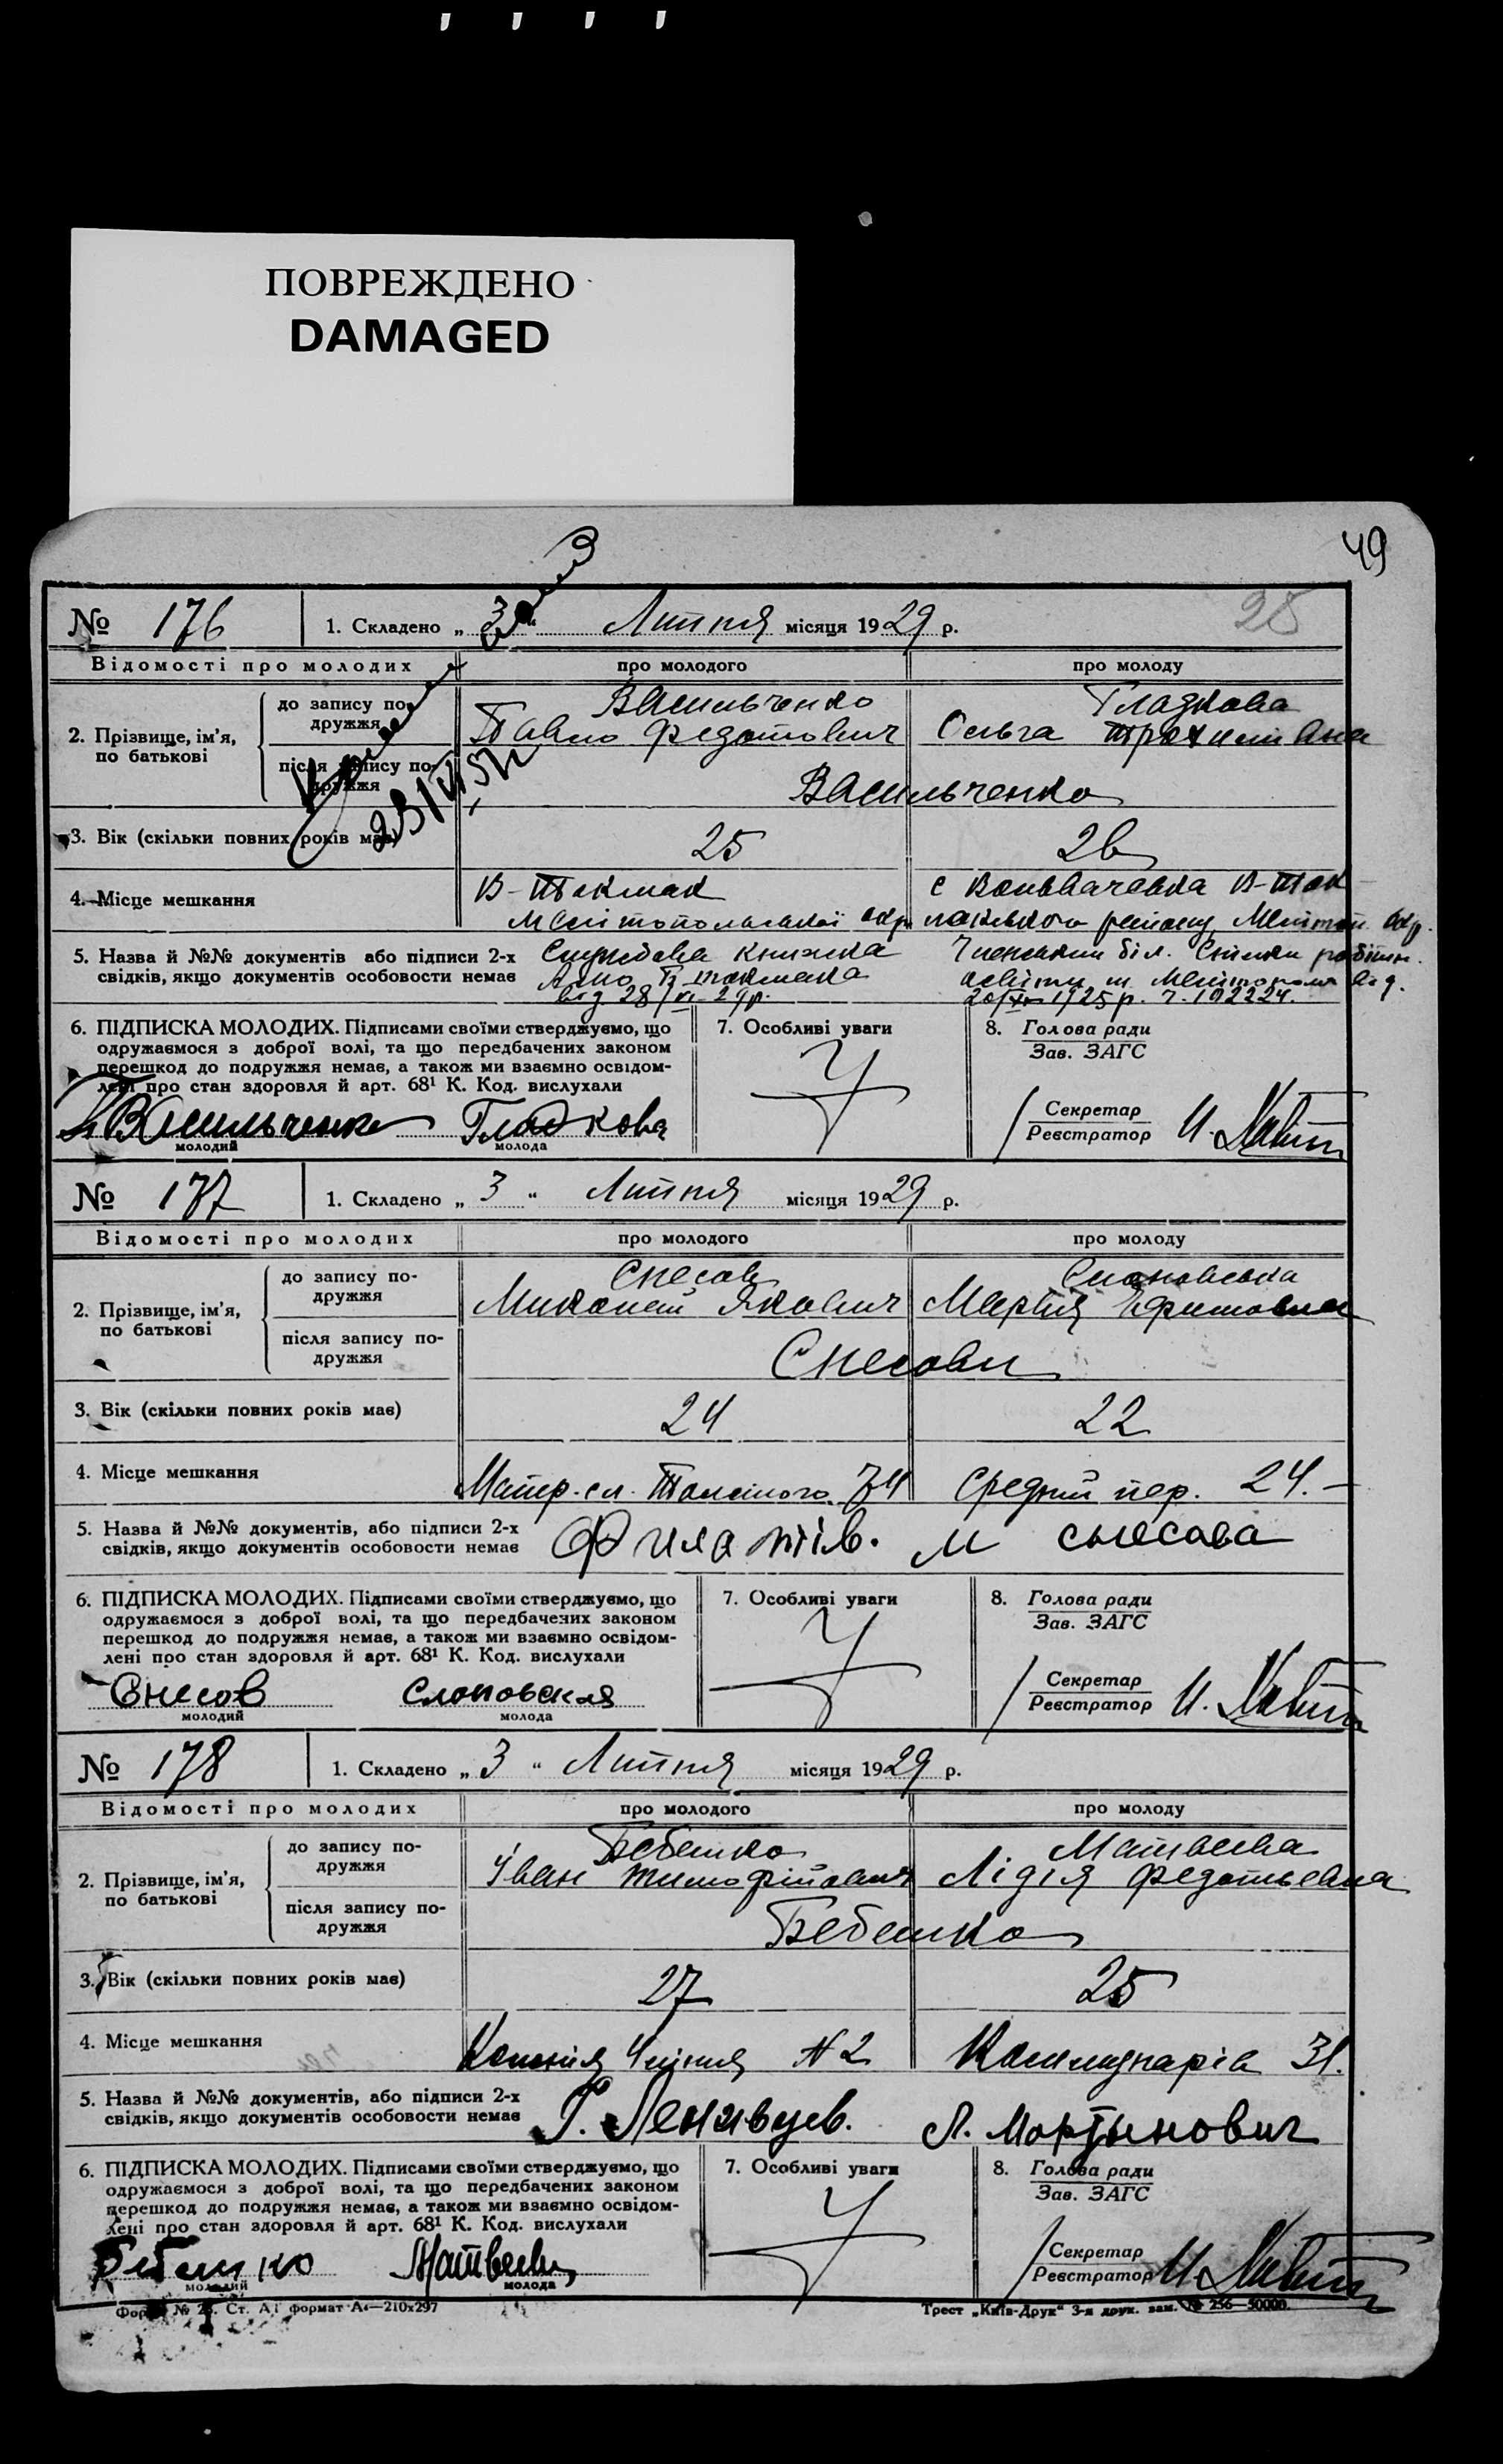 ПОВРЕЖДЕНО
DAMAGED
49
28
№ 176 1. Складено „ 3 “ Липня місяця 1929 р.
Відомості про молодих про молодого про молоду
2. Прізвище, ім’я, по батькові
до запису подружжя
Васильченко Гладкова
Павло Федотович Ольга
після запису подружжя
Васильченко
23/VI 51
3. Вік (скільки повних років має) 25 26
4. Місце мешкання В-Токмак с
Мелітопольської окр. району, Меліт. окр.
5. Назва й №№ документів або підписи 2-х Службова книжка Членський біл. Спілки робітн.
свідків, якщо документів особовости немає освіти м. Мелітополя від
від 28/VI-29р. 1925р. ч. 192224.
6. ПІДПИСКА МОЛОДИХ. Підписами своїми стверджуємо, що 7. Особливі уваги 8. Голова ради
одружаємося з доброї волі, та що передбачених законом Зав. ЗАГС
перешкод до подружжя немає, а також ми взаємно освідом-
лені про стан здоровля й арт. 68¹ К. Код. вислухали Секретар
Васильченко Гладкова Реєстратор
молодий молода
№ 177 1. Складено „ 3 “ Липня місяця 1929 р.
Відомості про молодих про молодого про молоду
2. Прізвище, ім’я, по батькові
до запису подружжя
Снесов Слоновська
Миколай Якович Марія Ефимовна
після запису подружжя
Снесови
3. Вік (скільки повних років має) 24 22
4. Місце мешкання Толстого 74 Средний пер. 24.–
5. Назва й №№ документів, або підписи 2-х
свідків, якщо документів особовости немає Філатів. М Снесова
6. ПІДПИСКА МОЛОДИХ. Підписами своїми стверджуємо, що 7. Особливі уваги 8. Голова ради
одружаємося з доброї волі, та що передбачених законом Зав. ЗАГС
перешкод до подружжя немає, а також ми взаємно освідом-
лені про стан здоровля й арт. 68¹ К. Код. вислухали Секретар
Снесов Слоновская Реєстратор
молодий молода
№ 178 1. Складено „ 3 “ Липня місяця 1929 р.
Відомості про молодих про молодого про молоду
2. Прізвище, ім’я, по батькові
до запису подружжя
Бебешко Матвеева
Іван Тимофійович Лідія Федотьевна
після запису подружжя
Бебешко
3. Вік (скільки повних років має) 27 25
4. Місце мешкання Колонія N 2 Комунарів 31.
5. Назва й №№ документів, або підписи 2-х
свідків, якщо документів особовости немає Г. Ленивцев. Л. Мартынович
6. ПІДПИСКА МОЛОДИХ. Підписами своїми стверджуємо, що 7. Особливі уваги 8. Голова ради
одружаємося з доброї волі, та що передбачених законом Зав. ЗАГС
перешкод до подружжя немає, а також ми взаємно освідом-
лені про стан здоровля й арт. 68¹ К. Код. вислухали Секретар
Бебешко Матвеева Реєстратор
молодий молода
Форма № 25. Ст. А1 формат А4—210х297 Трест „Київ-Друк“ 3-я друк. зам. № 256—50000.